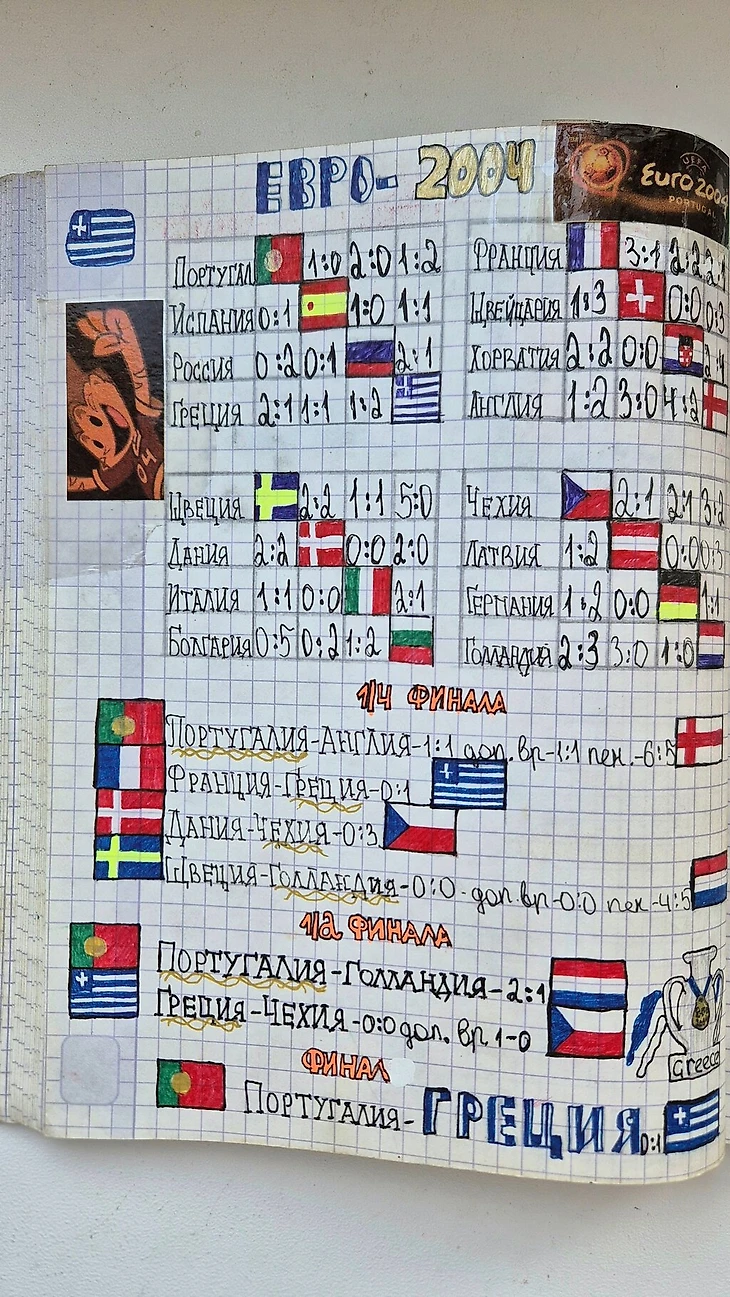 ЕВРО-2004
UEFA
Euro2004
PORTUGAL
ПОРТУГАЛ 1:0 2:0 1:2
ИСПАНИЯ 0:1 1:0 1:1
РОССИЯ 0:2 0:1 2:1
ГРЕЦИЯ 2:1 1:1 1:2
ФРАНЦИЯ 3:1 2:2 2:1
ШВЕЙЦАРИЯ 1:3 0:0 0:3
ХОРВАТИЯ 2:2 0:0 2:4
АНГЛИЯ 1:2 3:0 4:2
04
ШВЕЦИЯ 2:2 1:1 5:0
ДАНИЯ 2:2 0:0 2:0
ИТАЛИЯ 1:1 0:0 2:1
БОЛГАРИЯ 0:5 0:2 1:2
ЧЕХИЯ 2:1 2:1 3:2
ЛАТВИЯ 1:2 0:0 0:3
ГЕРМАНИЯ 1:2 0:0 1:1
ГОЛЛАНДИЯ 2:3 3:0 1:0
1/4 ФИНАЛА
ПОРТУГАЛИЯ-АНГЛИЯ-1:1 доп.вр-1:1 пен.-6:5
ФРАНЦИЯ-ГРЕЦИЯ-0:1
ДАНИЯ-ЧЕХИЯ-0:3
ШВЕЦИЯ-ГОЛЛАНДИЯ-0:0-доп.вр-0:0 пен-4:5
1/2 ФИНАЛА
ПОРТУГАЛИЯ-ГОЛЛАНДИЯ-2:1
ГРЕЦИЯ-ЧЕХИЯ-0:0 доп. вр 1-0
Greece
ФИНАЛ
ПОРТУГАЛИЯ-ГРЕЦИЯ 0:1